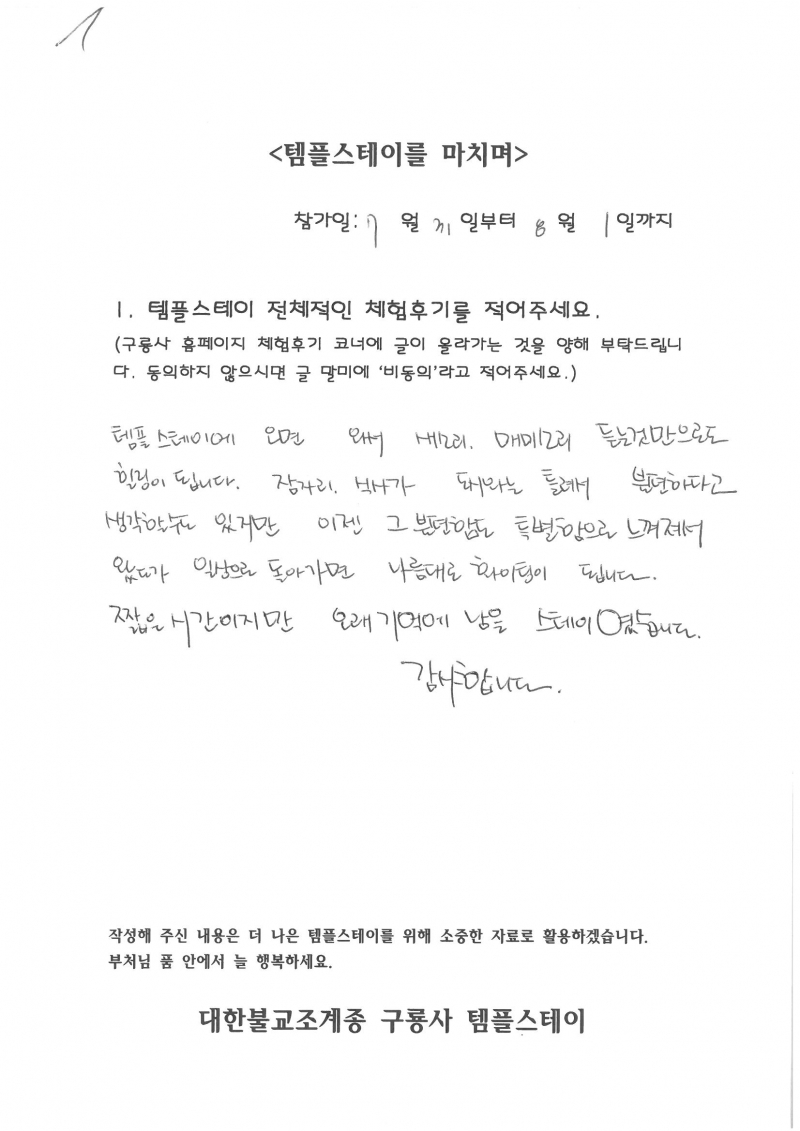 1
<템플스테이를 마치며>
참가일: 7 월 31 일부터 8 월 1 일까지
1. 템플스테이 전체적인 체험후기를 적어주세요.
(구룡사 홈페이지 체험후기 코너에 글이 올라가는 것을 양해 부탁드립니
다. 동의하지 않으시면 글 말미에 '비동의'라고 적어주세요.)
템플스테이에 오면 와서 새소리. 매미소리 듣는것만으로도
힐링이 됩니다. 잠자리. 식사가 집과는 틀려서 불편하다고
생각할수도 있지만 이젠 그 불편함도 특별함으로 느껴져서
왔다가 일상으로 돌아가면 나름대로 화이팅이 됩니다.
짧은 시간이지만 오래 기억에 남을 스테이였습니다.
감사합니다.
작성해 주신 내용은 더 나은 템플스테이를 위해 소중한 자료로 활용하겠습니다.
부처님 품 안에서 늘 행복하세요.
대한불교조계종 구룡사 템플스테이